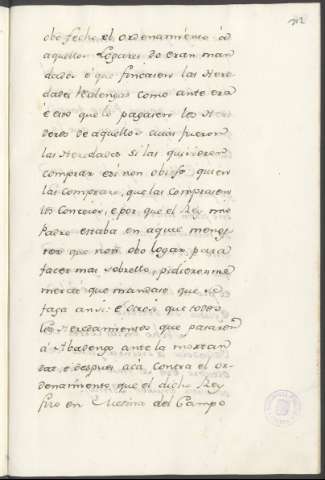 obo fecho el ordenamiento á
aquellos Logares do eran man
dados é que fincasen las Here
dades Realengas como ante era
é eso que lo pagasen los Here
deros de aquellos cuias fueron
las Heredades si las quisieren
comprar esi non obiese quien
las comprase, que las comprasen
los Concejos, é por que el Rey mio
Padre estaba en aquel menes
ter que non obo logar para
facer mas sobrello, pidieronme
merced que mandase que se
faga ansi: é otrosi que todos
los Heredamientos que pasaron
á Abadengo ante la mortan
dat, é despues acá contra el or-
denamiento que el dicho Rey
fizo en Medina del Campo